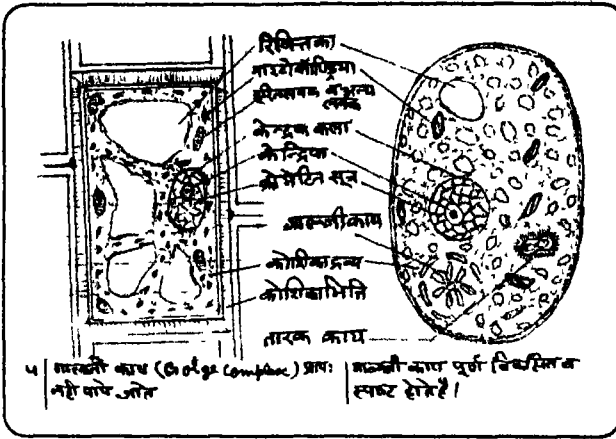 रिक्तिका
माइटोकॉण्ड्रिया
हरितलवक व अन्य
लवक
केन्द्रक कला
केन्द्रिका
क्रोमेटिन सूत्र
गाल्जीकाय
कोशिकाद्रव्य
कोशिकाभित्ति
तारक काय
५ गाल्जी काय (Golge Complex) प्रायः
नहीं पाये जाते
गाल्जी काय पूर्ण विकसित व
स्पष्ट होते है।